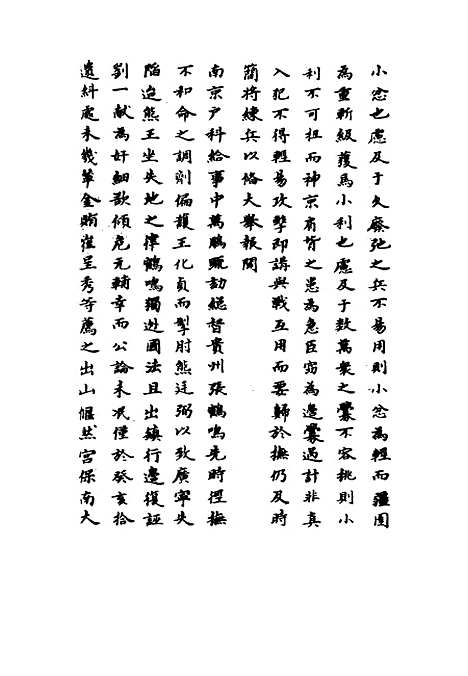 小忿也慮及于久廢弛之兵不易用則小忿為輕而疆圉
為重斬級獲馬小利也慮及于数萬衆之釁不容挑則小
利不可狃而神京肩背之患為急臣窃為邊釁過計非真
入犯不得輕易攻擊即講與戰互用而要歸於撫仍及時
蒐將練兵以俻大舉報聞
南京户科給事中萬鵬疏劾總督貴州張鶴鳴先時經撫
不和命之調劑偏護王化貞而掣肘熊廷弼以致廣寧失
陷迨熊王坐失地之律鶴鳴獨逃國法且出鎮行邊復誣
劉一献為奸細欲傾危元輔幸而公論未泯僅於癸亥拾
遺糾處未幾輦金賄崔呈秀等薦之出山偃然宫保南大